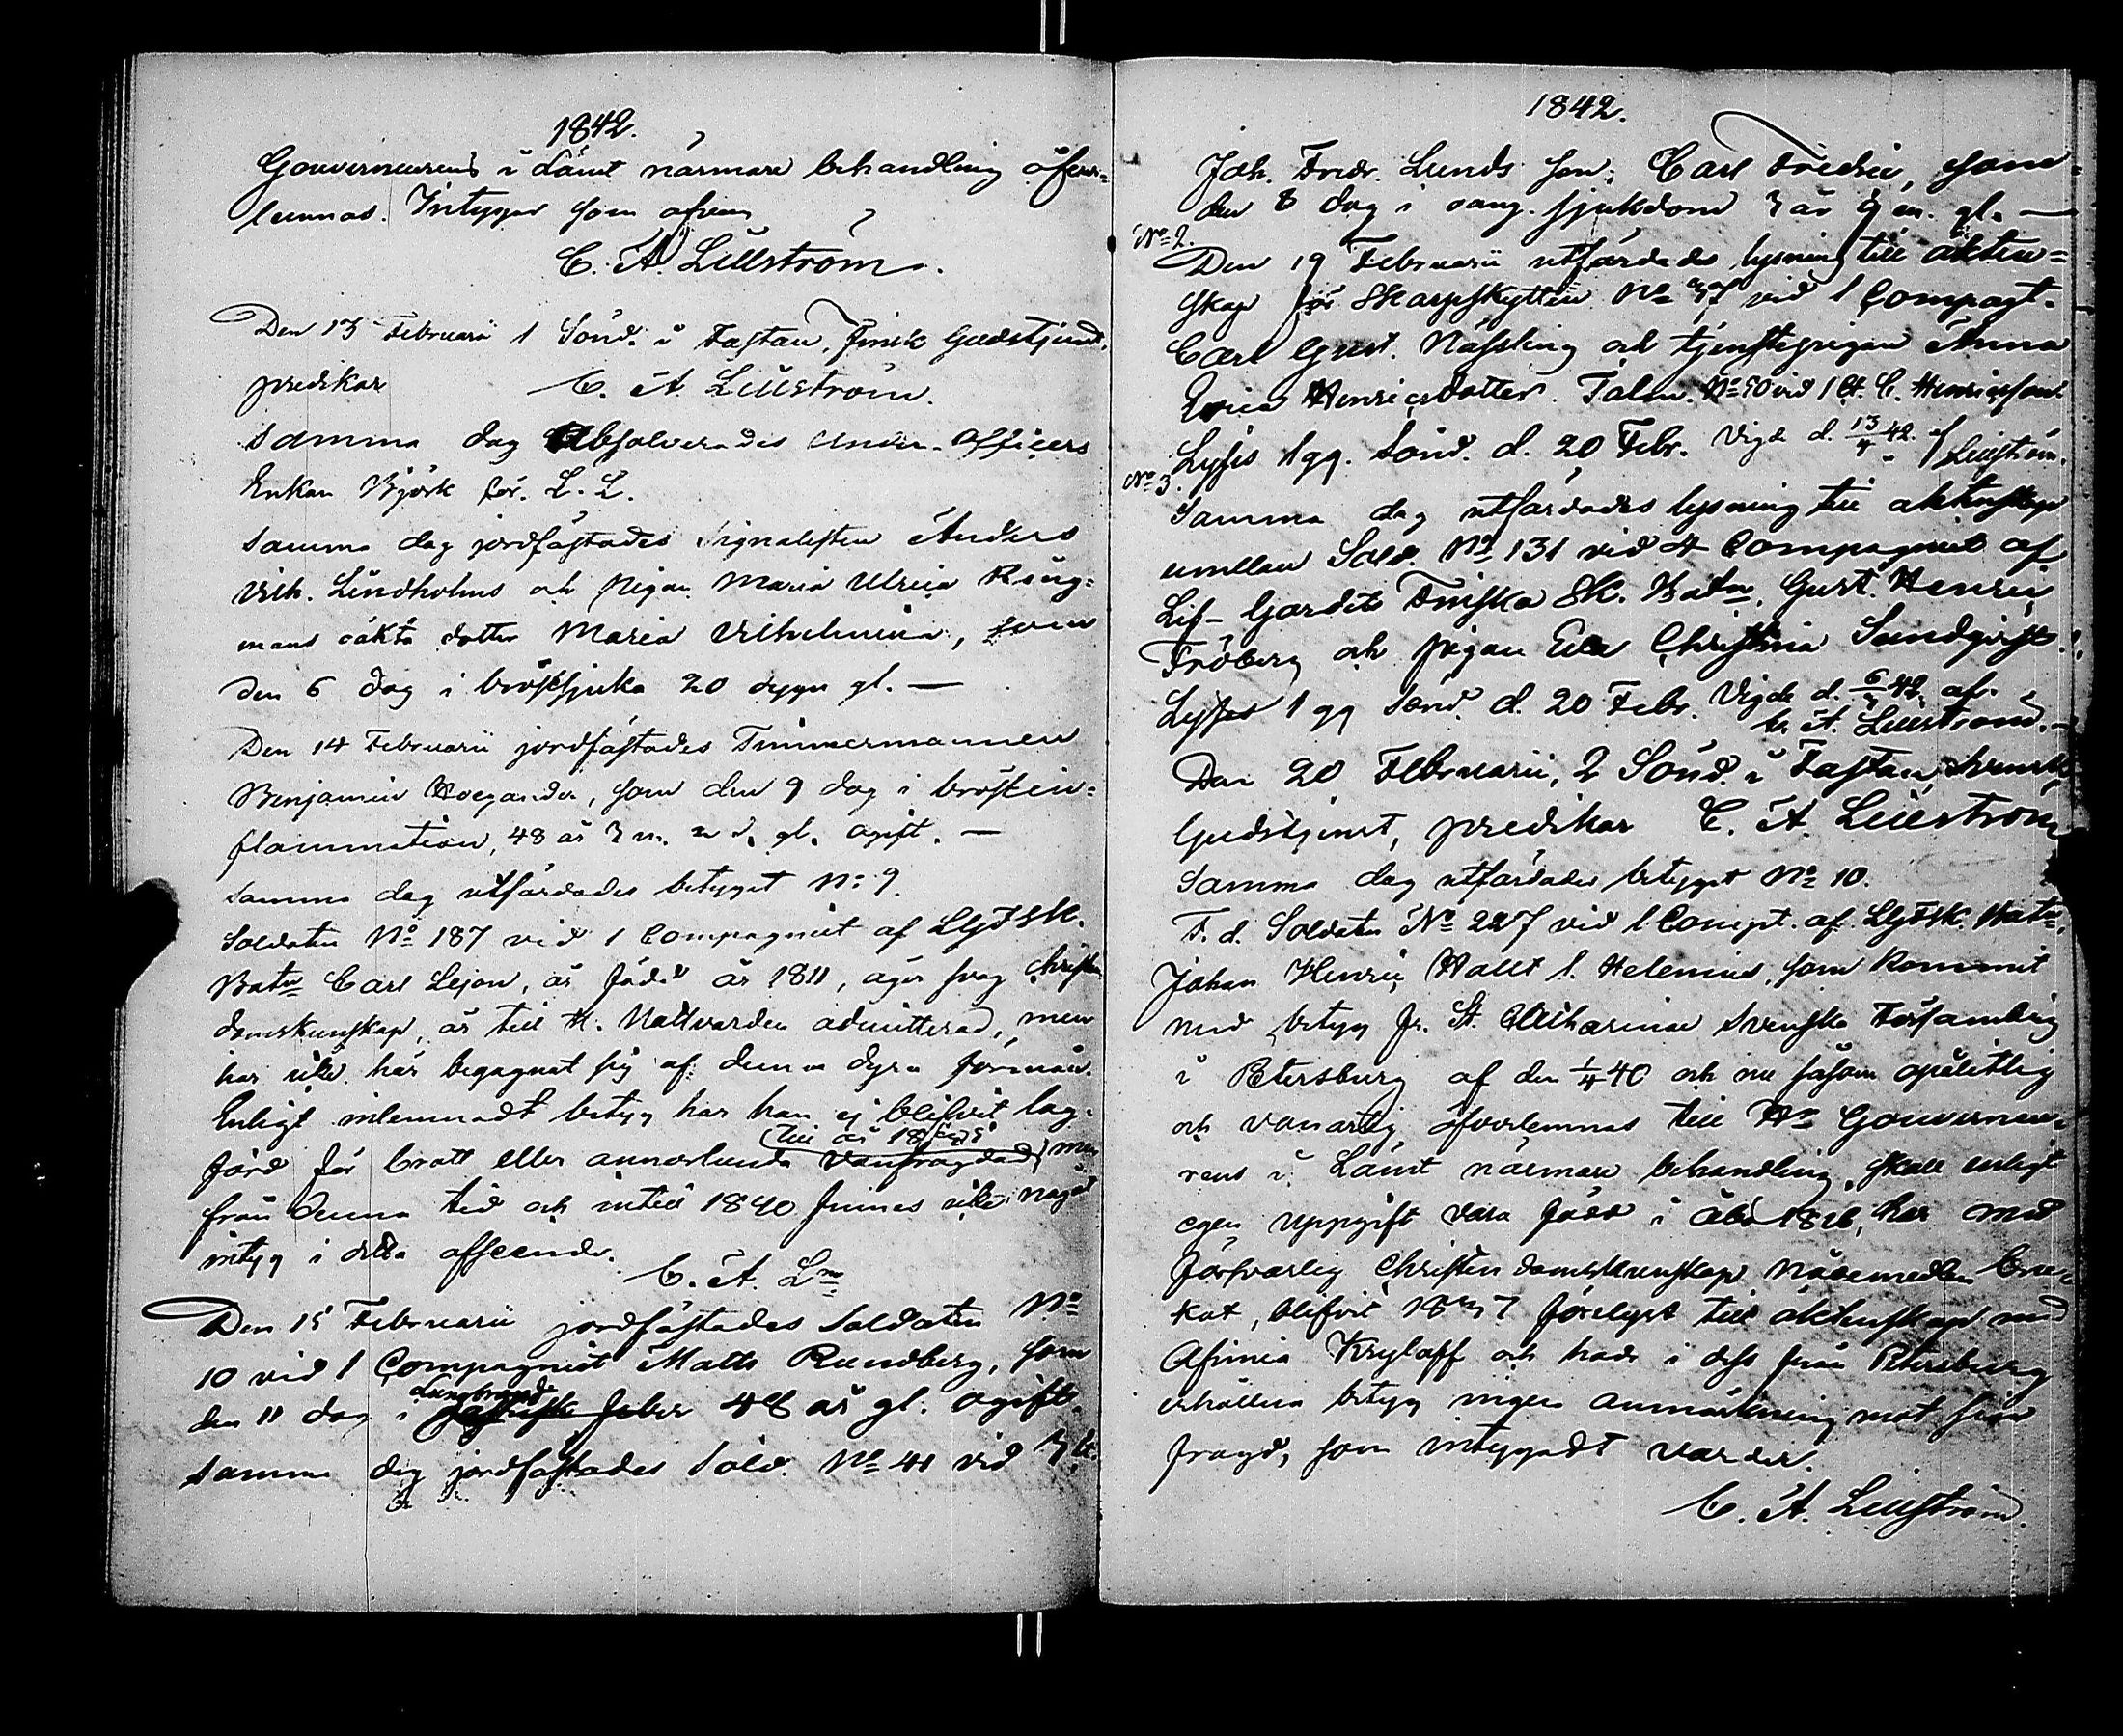 1842.
Gouverneurens i Länet närmare behandling öfver-
lemnas. Intygar som ofvan
C. A. Lillström.
Den 13 Februarii 1 Sönd. i Fastan, finsk Gudstjenst,
predikar C. A. Lillström.
Samma dag Absolverades Under-Officers
Enkan Björk för. L. L.
Samma dag jordfästades Signalisten Anders
Vilh. Lindholms och pigan Maria Ulrica Ring-
mans oäkta dotter Maria Vilhelmina, som
den 6 dog i bröstsjuka 20 dygn gl. —
Den 14 Februarii jordfästades Timmermannen
Benjamin Hoegander, som den 9 dog i bröstin-
flammation, 48 år 3 m. 2 d. gl. ogift. —
Samma dag utfärdades betyget N:o 9.
Soldaten No 187 vid 1 Compagniet af LGFSk.
Batn Carl Lejon, är född år 1811, äger svag Christen
domskunskap, är till H. Nattvarden admitterad, men
har icke här begagnat sig af denna dyra förmån.
Enligt inlemnadt betyg har han ej blifvit lag-
förd för brott eller annorlunda vanfrägdad, men
(till år 1835)
från denna tid och intill 1840 finnes icke något
intyg i detta afseende.
C. A. Lm.
Den 15 Februarii jordfästades Soldaten No
10 vid 1 Compagniet Matts Rundberg, som
den 11 dog i Lungbrand feber 48 år gl. ogift.
Samma dag jordfästades Sold. No 41 vid 3 Ct.
1842.
Joh. Fredr. Lunds son, Carl Fredric, som
den 8 dog i sjukdom 3 år 9 m. gl. —
No 2.
Den 19 Februarii utfärdades lysning till äkten-
skap för Skarpskytten No 37 vid 1 Compagt.
Carl Gust. Nässling och tjenstepigan Anna
Erica Henricsdotter. Talm. No 50 vid 1 Ct. C. Henricsson.
Lyses 1 gg. Sönd. d. 20 Febr. Vigde d. 13/4 42. af Lillström.
No 3.
Samma dag utfärdades lysning till äktenskap
emellan Sold. No 131 vid 4 Compagniet af
Lif-Gardets Finska Sk. Batn. Gust. Henric
Fröberg och pigan Eva Christina Sandqvist.
Lyses 1 gg Sönd. d. 20 Febr. Vigde d. 6/3 42. af.
C. A. Lillström. —
Den 20 Februarii, 2 Sönd. i Fastan, svensk
Gudstjenst, predikar C. A. Lillström
Samma dag utfärdades betyget No 10.
F. d. Soldaten No 227 vid 1 Compt. af LGFSk. Batn.
Johan Henric Hallt l. Helenius, som kommit
med betyg fr. St. Catharinae Svenska Församling
i Petersburg af den 1/4 40 och nu såsom opålitlig
och vanartig öfverlemnas till Hr Gouverneu-
rens i Länet närmare behandling, skall enligt
egen uppgift vara född i Åbo 1816, har med
försvarlig Christendomskunskap nådemedlen bru-
kat, blifvit 1837 förelyst till äktenskap med
Afimia Kryloff och hade i dess från Petersburg
erhållna betyg ingen anmärkning mot sin
frägd, som intygadt varder.
C. A. Lillström.